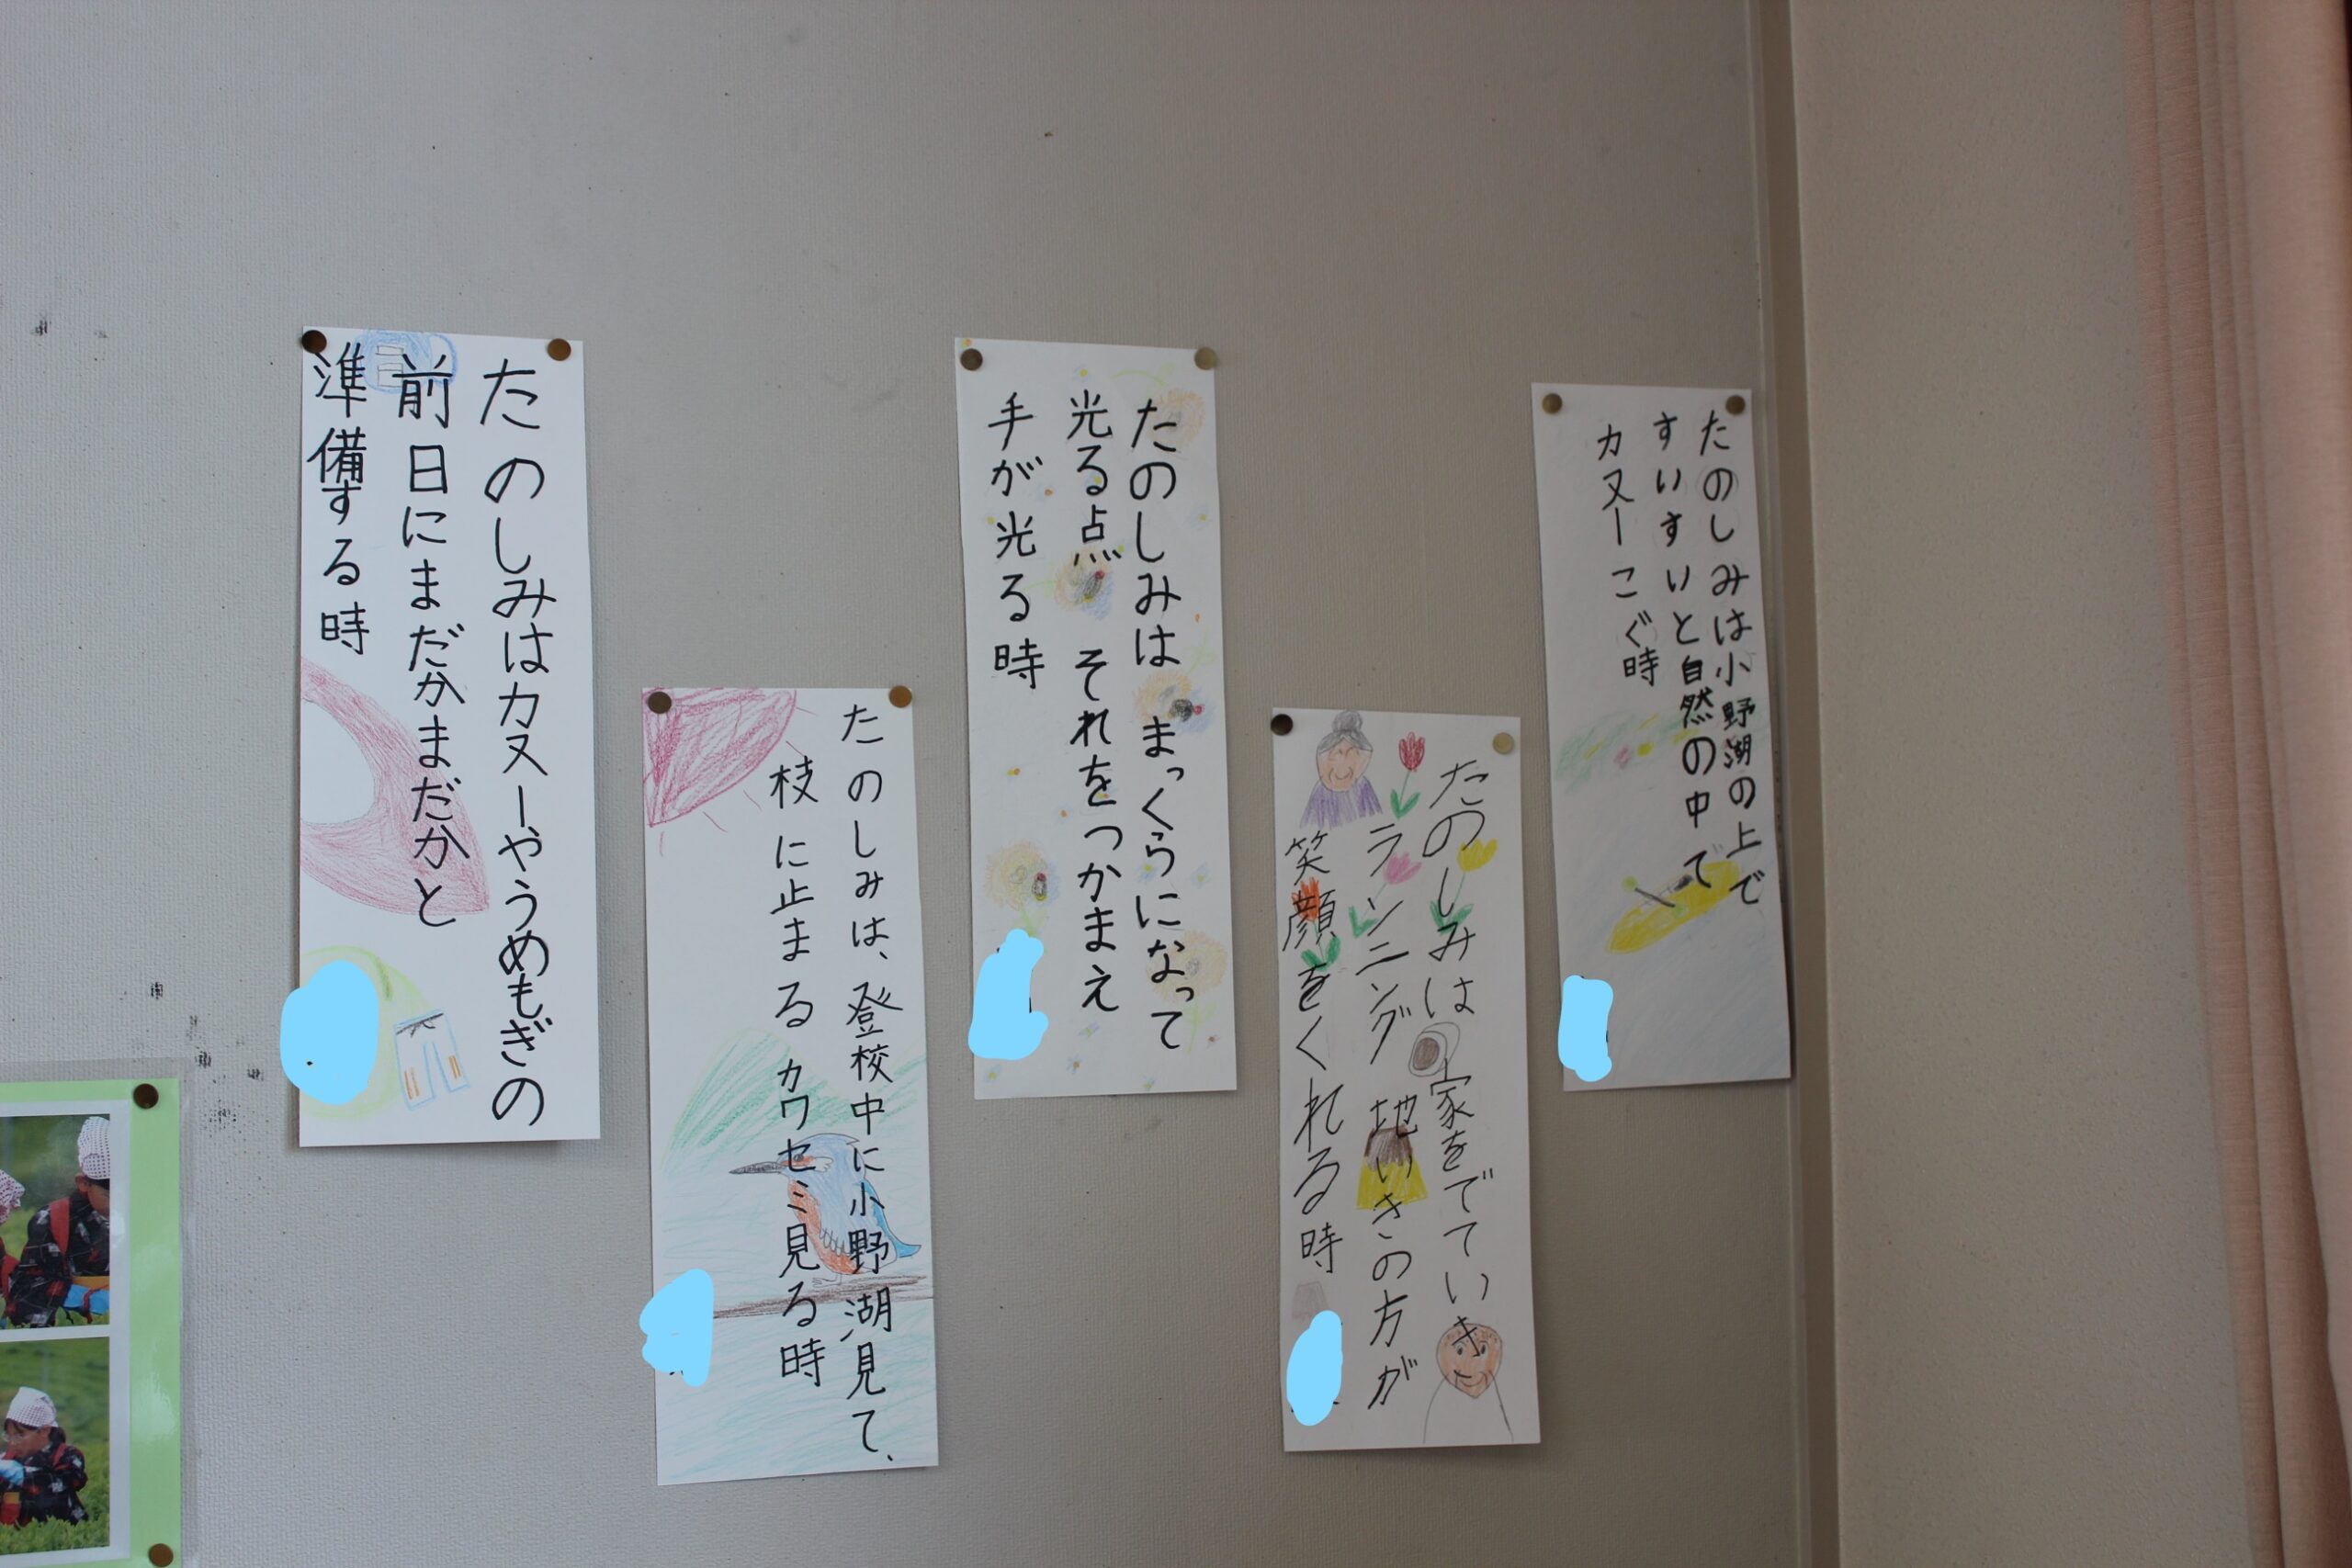 たのしみはカヌーやうめもぎの
前日にまだかまだかと
準備する時
たのしみは、登校中に小野湖見て、
枝に止まるカワセミ見る時
たのしみは まっくらになって
光る点 それをつかまえ
手が光る時
たのしみは 家をでていき
ランニング 地いきの方が
笑顔をくれる時
たのしみは小野湖の上で
すいすいと自然の中で
カヌーこぐ時